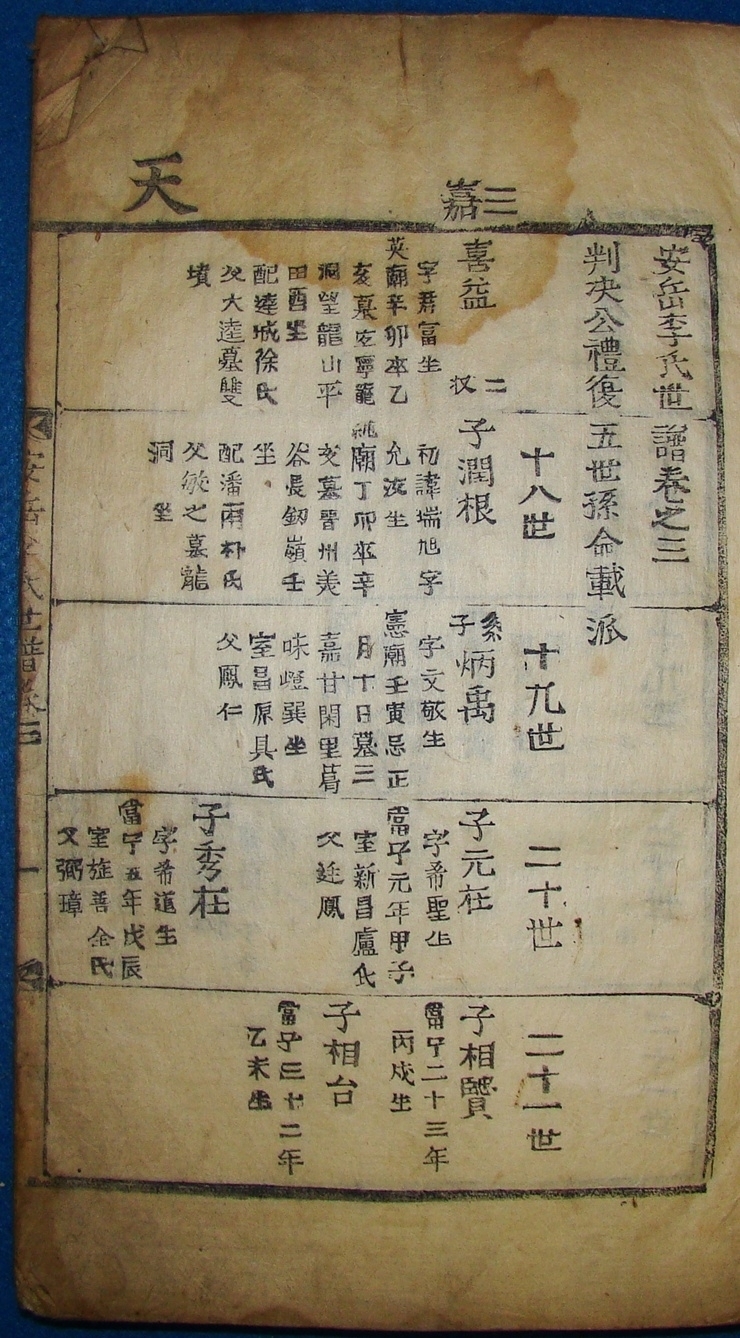 天
三嘉
安岳李氏世譜卷之三
判决公禮復五世孫命載派
喜益
二
字君富生
英廟辛卯卒乙
亥墓在寧龍
洞望龍山平
田酉坐
配達城徐氏
父大逵墓雙
墳
十八世
子潤根
初諱瑞旭字
允汝生
純廟丁卯卒辛
亥墓晋州美
谷長釰嶺壬
坐
配潘南朴氏
父敏之墓龍
洞 坐
十九世
系子炳禹
字文敬生
憲廟壬寅忌正
月十日墓三
嘉甘閑里葛
味嶝巽坐
室昌原具氏
父鳳仁
二十世
子元在
字希聖生
當宁元年甲子
室新昌盧氏
父廷鳳
子秀在
字希道生
當宁五年戊辰
室旌善全氏
父弼璋
二十一世
子相贒
當宁二十三年
丙戌生
子相台
當宁三十二年
乙未生
安岳李氏世譜卷三
一